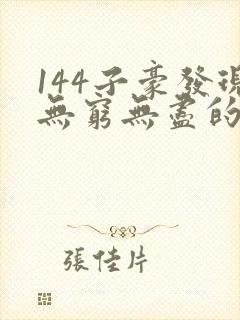 144子豪發現
無窮無盡的
張佳片